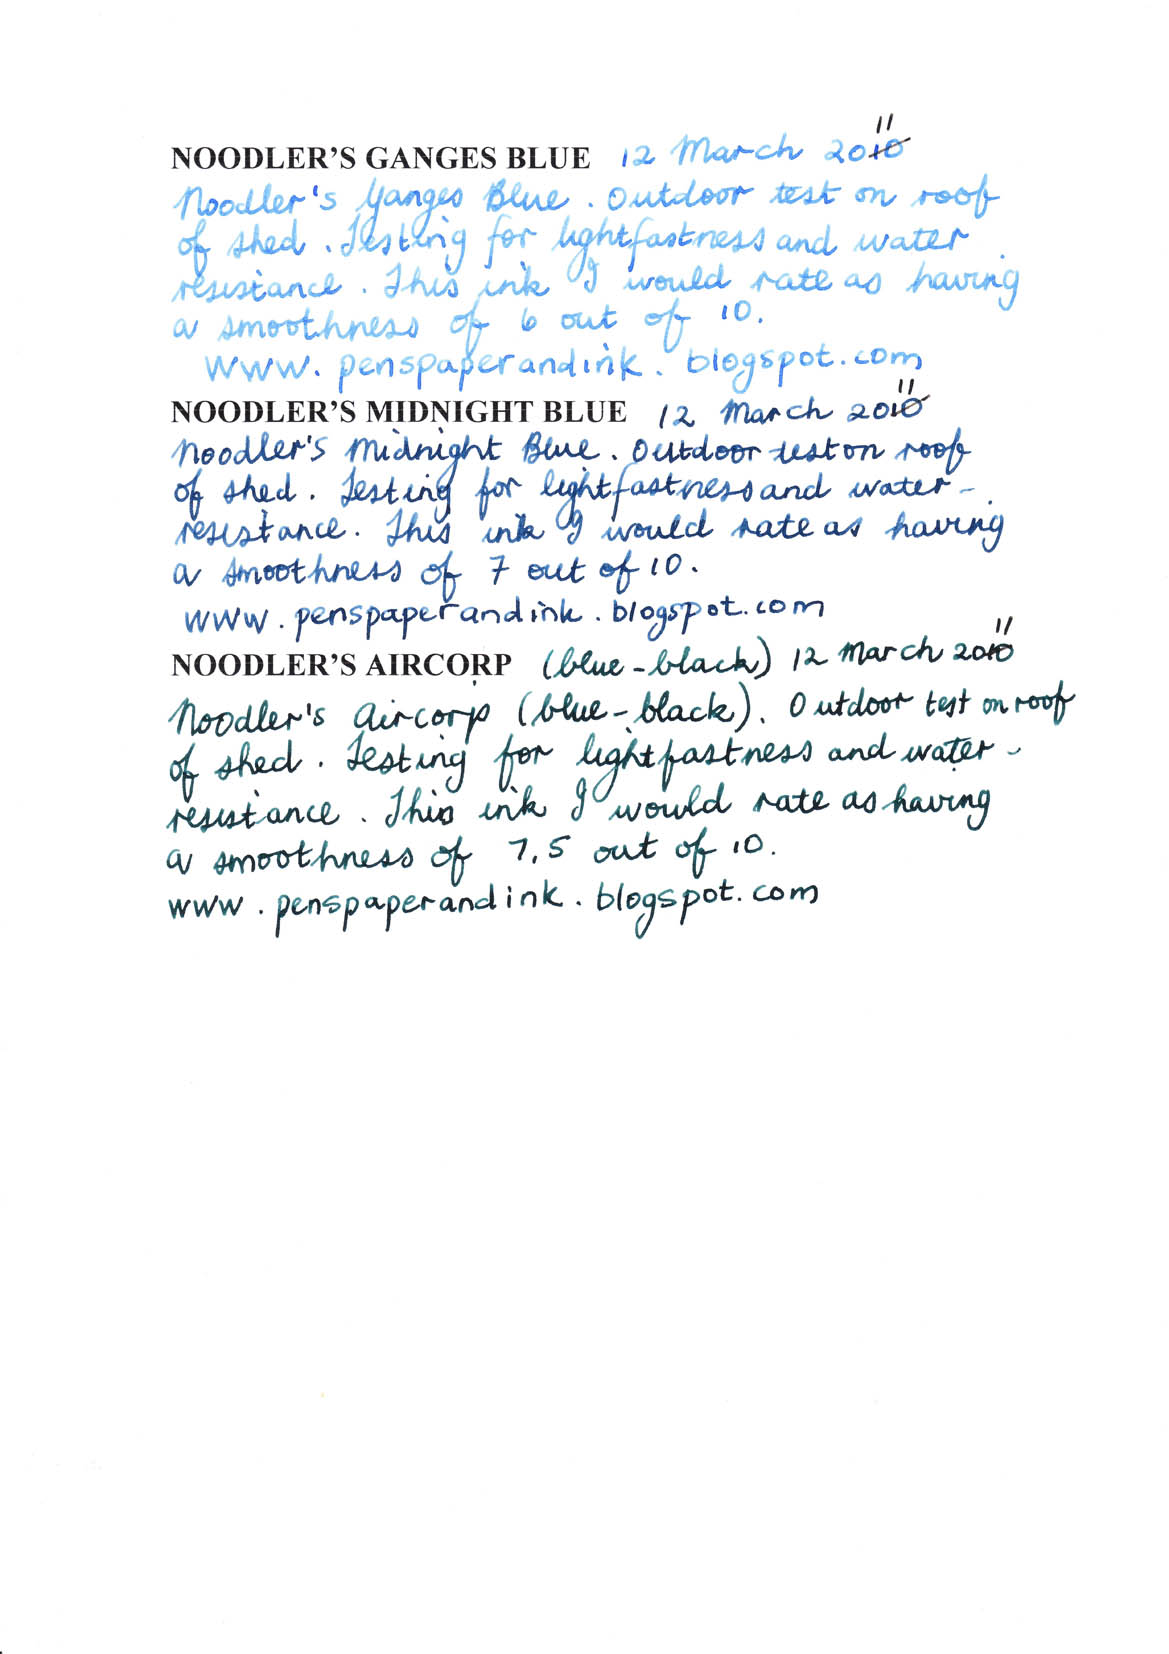 NOODLER'S GANGES BLUE 12 March 2010 11
Noodler's Ganges Blue. Outdoor test on roof
of shed. Testing for lightfastness and water
resistance. This ink I would rate as having
a smoothness of 6 out of 10.
www.penspaperandink.blogspot.com
NOODLER'S MIDNIGHT BLUE 12 March 2010 11
Noodler's Midnight Blue. Outdoor test on roof
of shed. Testing for lightfastness and water-
resistance. This ink I would rate as having
a smoothness of 7 out of 10.
www.penspaperandink.blogspot.com
NOODLER'S AIRCORP (blue-black) 12 March 2010 11
Noodler's Aircorp (blue-black). Outdoor test on roof
of shed. Testing for lightfastness and water-
resistance. This ink I would rate as having
a smoothness of 7,5 out of 10.
www.penspaperandink.blogspot.com